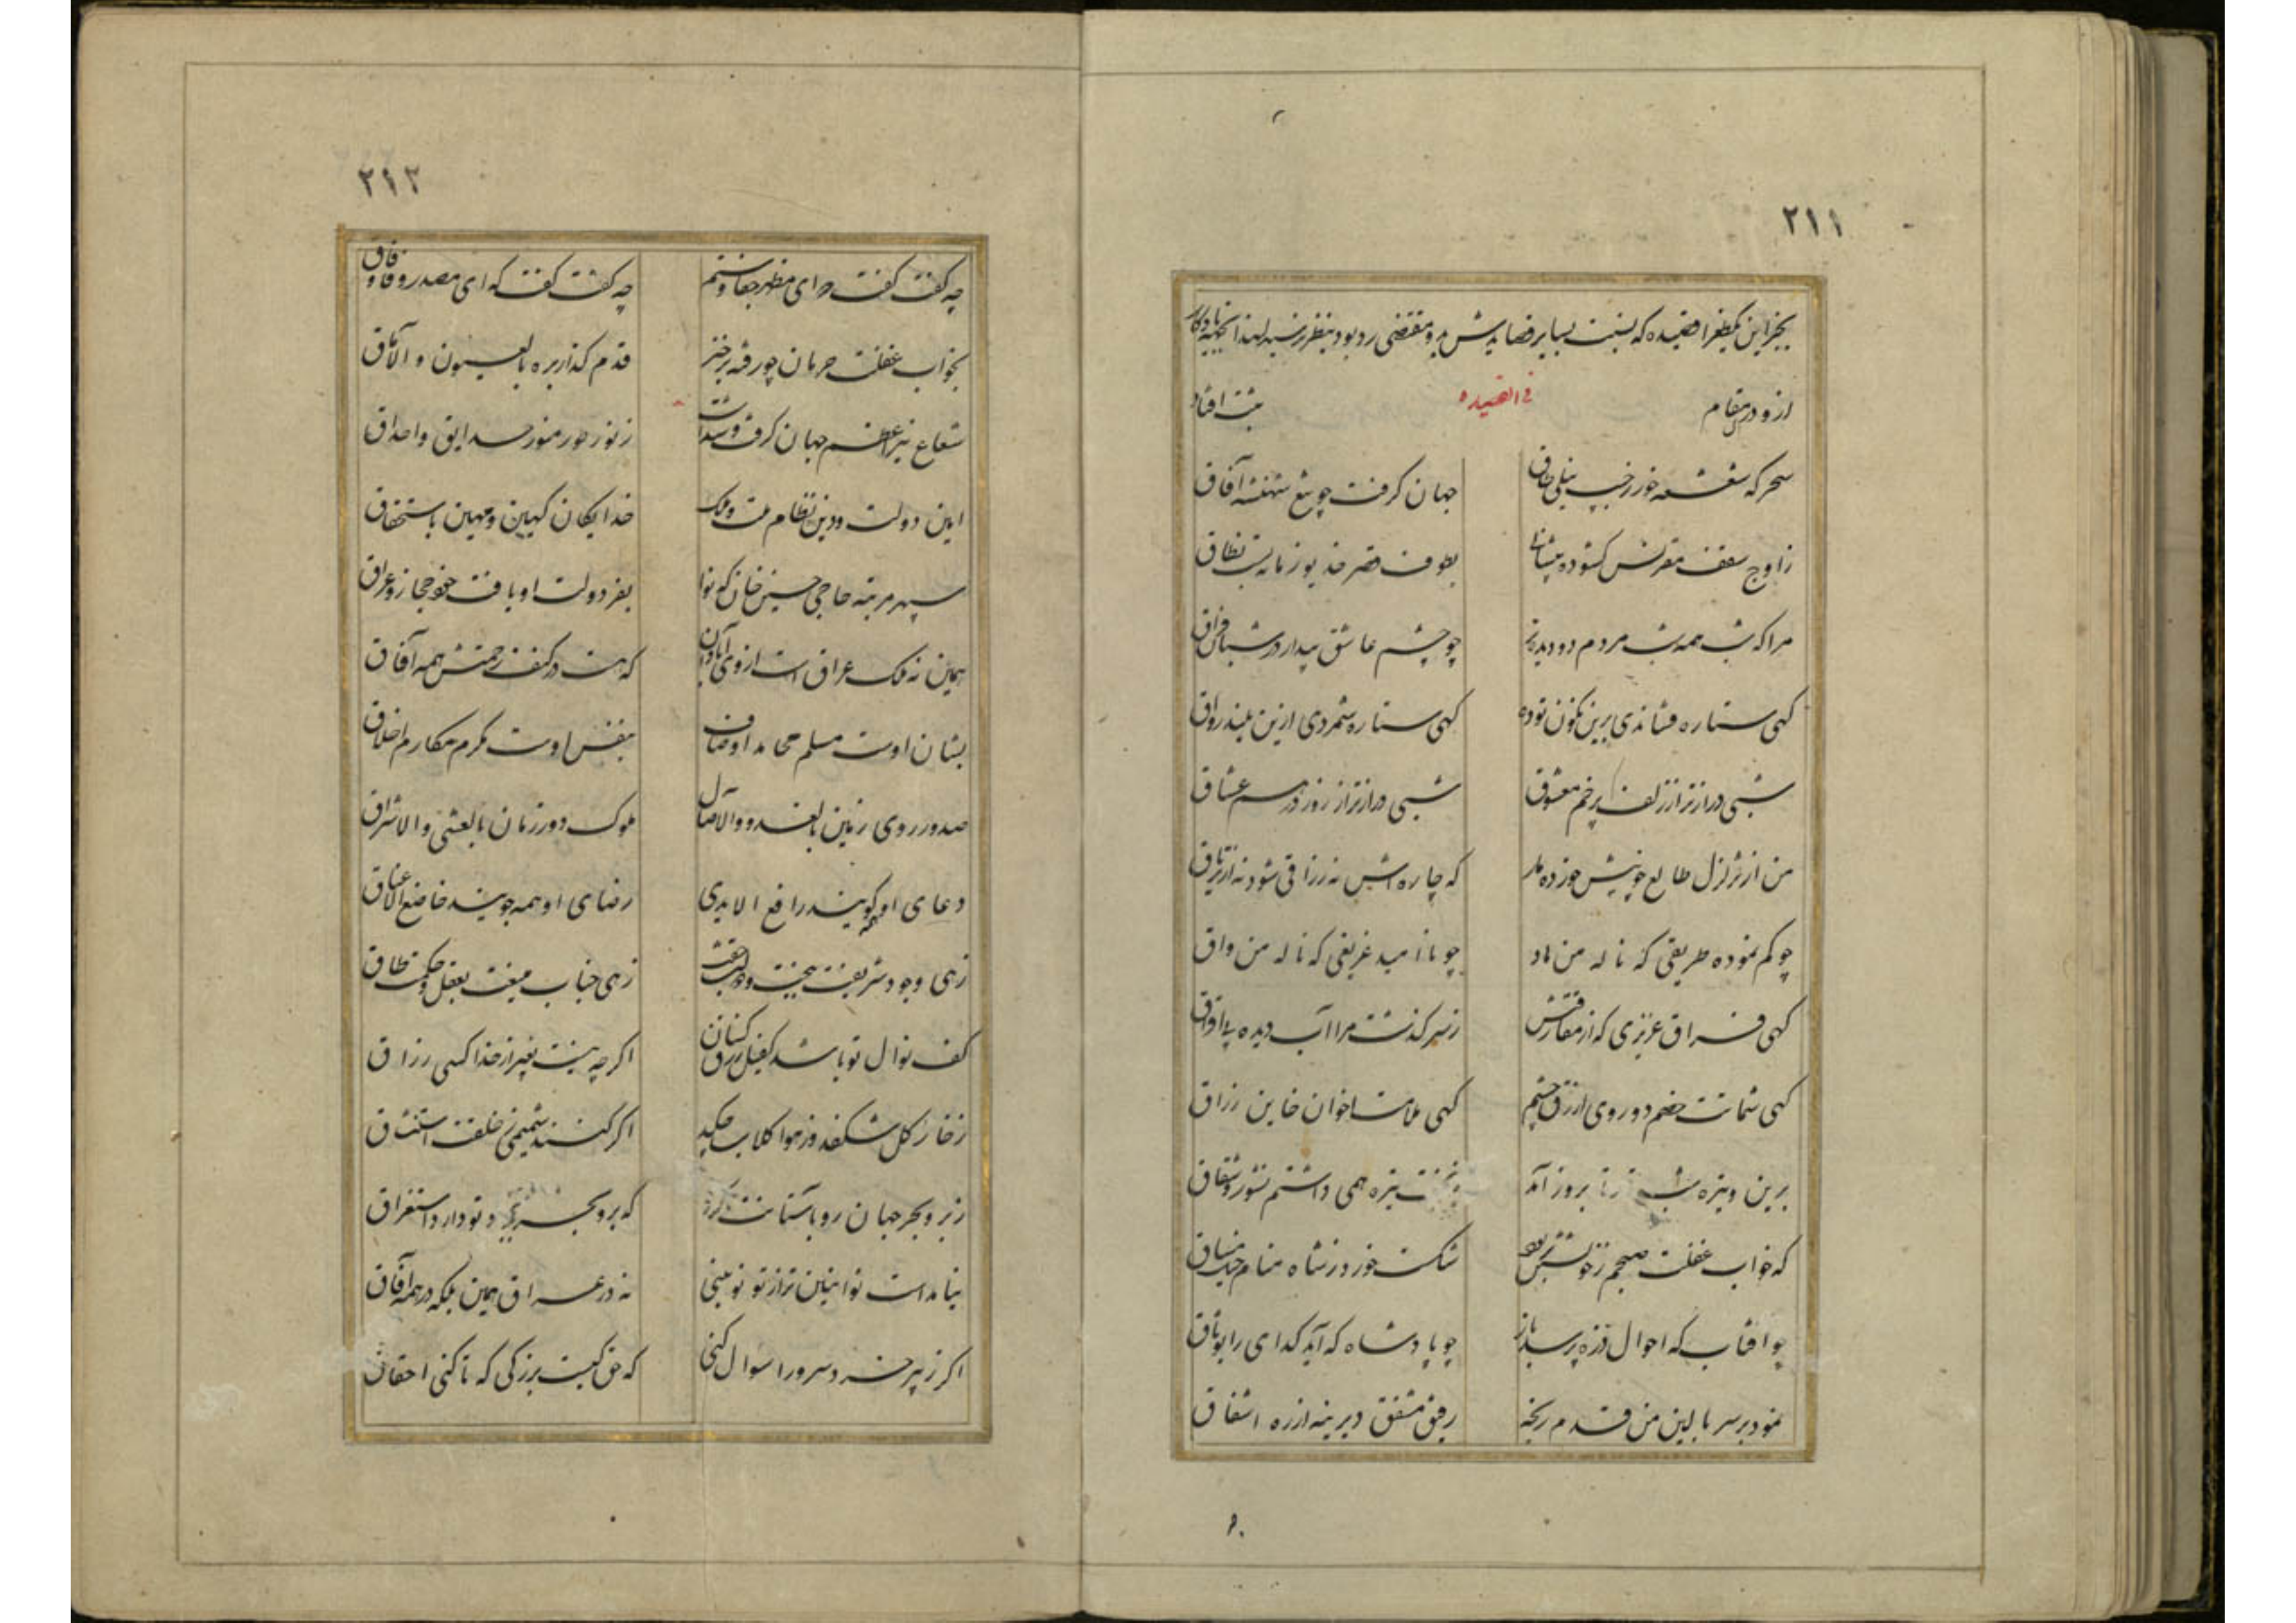 ۲۱۱
بجز این یکطغرا قصیده که بنسبت بسایر قصایدش بود بنظر رسید لهذا
ازو درین مقام
فی القصیده
ثبت افتاد
سحر که شعشعه خور
جهان گرفت چو تیغ شهنشه آفاق
ز اوج سقف مقرنس گشوده پیشانی
بطوف قصر خدیو زمانه بست نطاق
مرا که شب همه شب مردم دو دیده
چو چشم عاشق بیدار در شبان فراق
کهی ستاره فشاندی برین نگون توده
کهی ستاره شمردی ازین بلند رواق
شبی درازتر از زلف پرخم معشوق
شبی درازتر از روز درهم عشاق
من از تزلزل طالع چو نیش خورده مار
که چاره اش نه ز راقی شود نه از تریاق
چو گم نموده طریقی که ناله من هاد
چو ناامید غریقی که ناله من واق
کهی فراق عزیزی که از مفارقتش
ز سر گذشت مرا آب دیده
کهی شماتت خصم دوروی ازرق چشم
کهی ملامت اخوان خاین زراق
برین وتیره شب تا بروز آمد
تیره همی داشتم
که خواب غفلت صبحم ز خویشتن بربود
شکست خور ز نشاه منام
چو افتاب که احوال ذره پرسد باز
چو پادشاه که آید گدای را بوثاق
نمود بر سر بالین من قدم رنجه
رفیق مشفق دیرینه از ره اشفاق
۲۱۲
چه گفت گفت که ای مظهر جفا و ستم
چه گفت گفت که ای مصدر وفا و وفاق
بخواب غفلت حرمان چو رفته برخیز
قدم گذار بره بالعیون و الآماق
شعاع نیر اعظم جهان گرفت و شدست
ز نور حور منور حدایق و احداق
امین دولت و دین نظام ملت و ملک
خدایگان کهین و مهین باستحقاق
سپهر مرتبه حاجی حسین خان که نوا
بفر دولت او یافت حجاز و عراق
همین نه ملک عراق است از وی آبادان
که هست در کنف رحمتش همه آفاق
بشان اوست مسلم محامد اوصاف
بنفس اوست مکرم مکارم اخلاق
صدور روی زمین بالغدو والآصال
ملوک دور زمان بالعشی والاشراق
دعای او همه گویند رافع الایدی
رضای او همه جویند خاضع الاعناق
زهی وجود شریفت
زهی جناب منیعت بعقل و حکمت طاق
کف نوال تو باشد کفیل رزق کسان
اگر چه نیست بغیر از خدا کسی رزاق
ز خار گل شکفد وز هوا گلاب چکد
اگر کنند شمیمی ز خلقت استنشاق
ز بر و بحر جهان رو باستانت کرد
که بر و بحر تو دارد استغراق
نیامده است نوائین تر از تو نوئینی
نه در عراق همین بلکه در همه آفاق
اگر ز پیر خرد سرورا سوال کنی
که حق کیست بزرگی که تا کنی احقاق